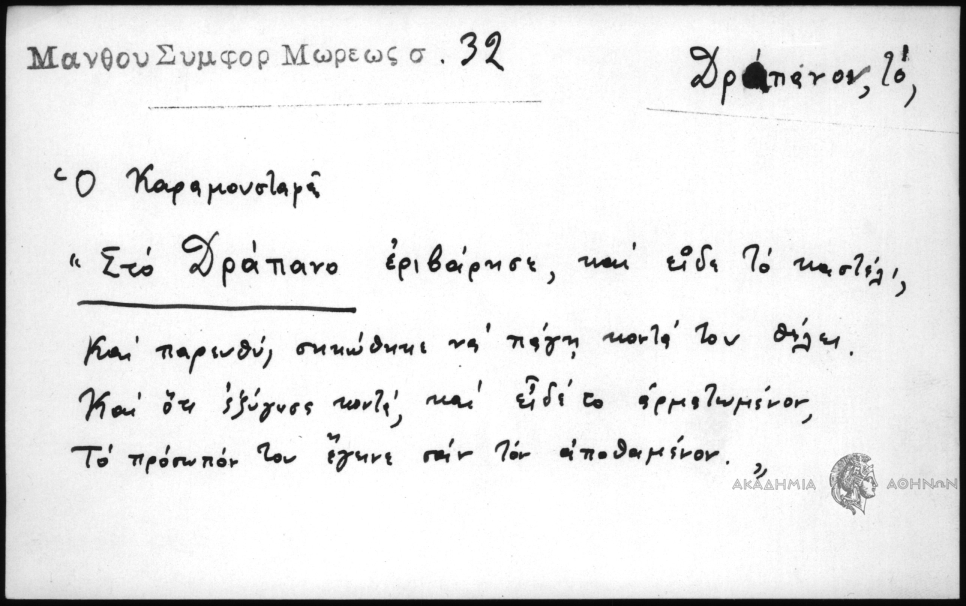 Μανθου Συμφορ Μωρεως σ. 32
Δράπανον, τό,
Ὁ Καραμουσταφᾶ
"Στό Δράπανο ἐριβάρησε, καί εἶδε τό καστέλι,
Καί παρευθύς σηκώθηκε νά πάγη κοντά του θέλει.
Καί ὅτι ἐξύγωσε κοντά, καί εἶδέ το ἀρματωμένον,
Τό πρόσωπόν του ἔγινε σάν τόν ἀποθαμένον."
ΑΚΑΔΗΜΙΑ ΑΘΗΝΩΝ